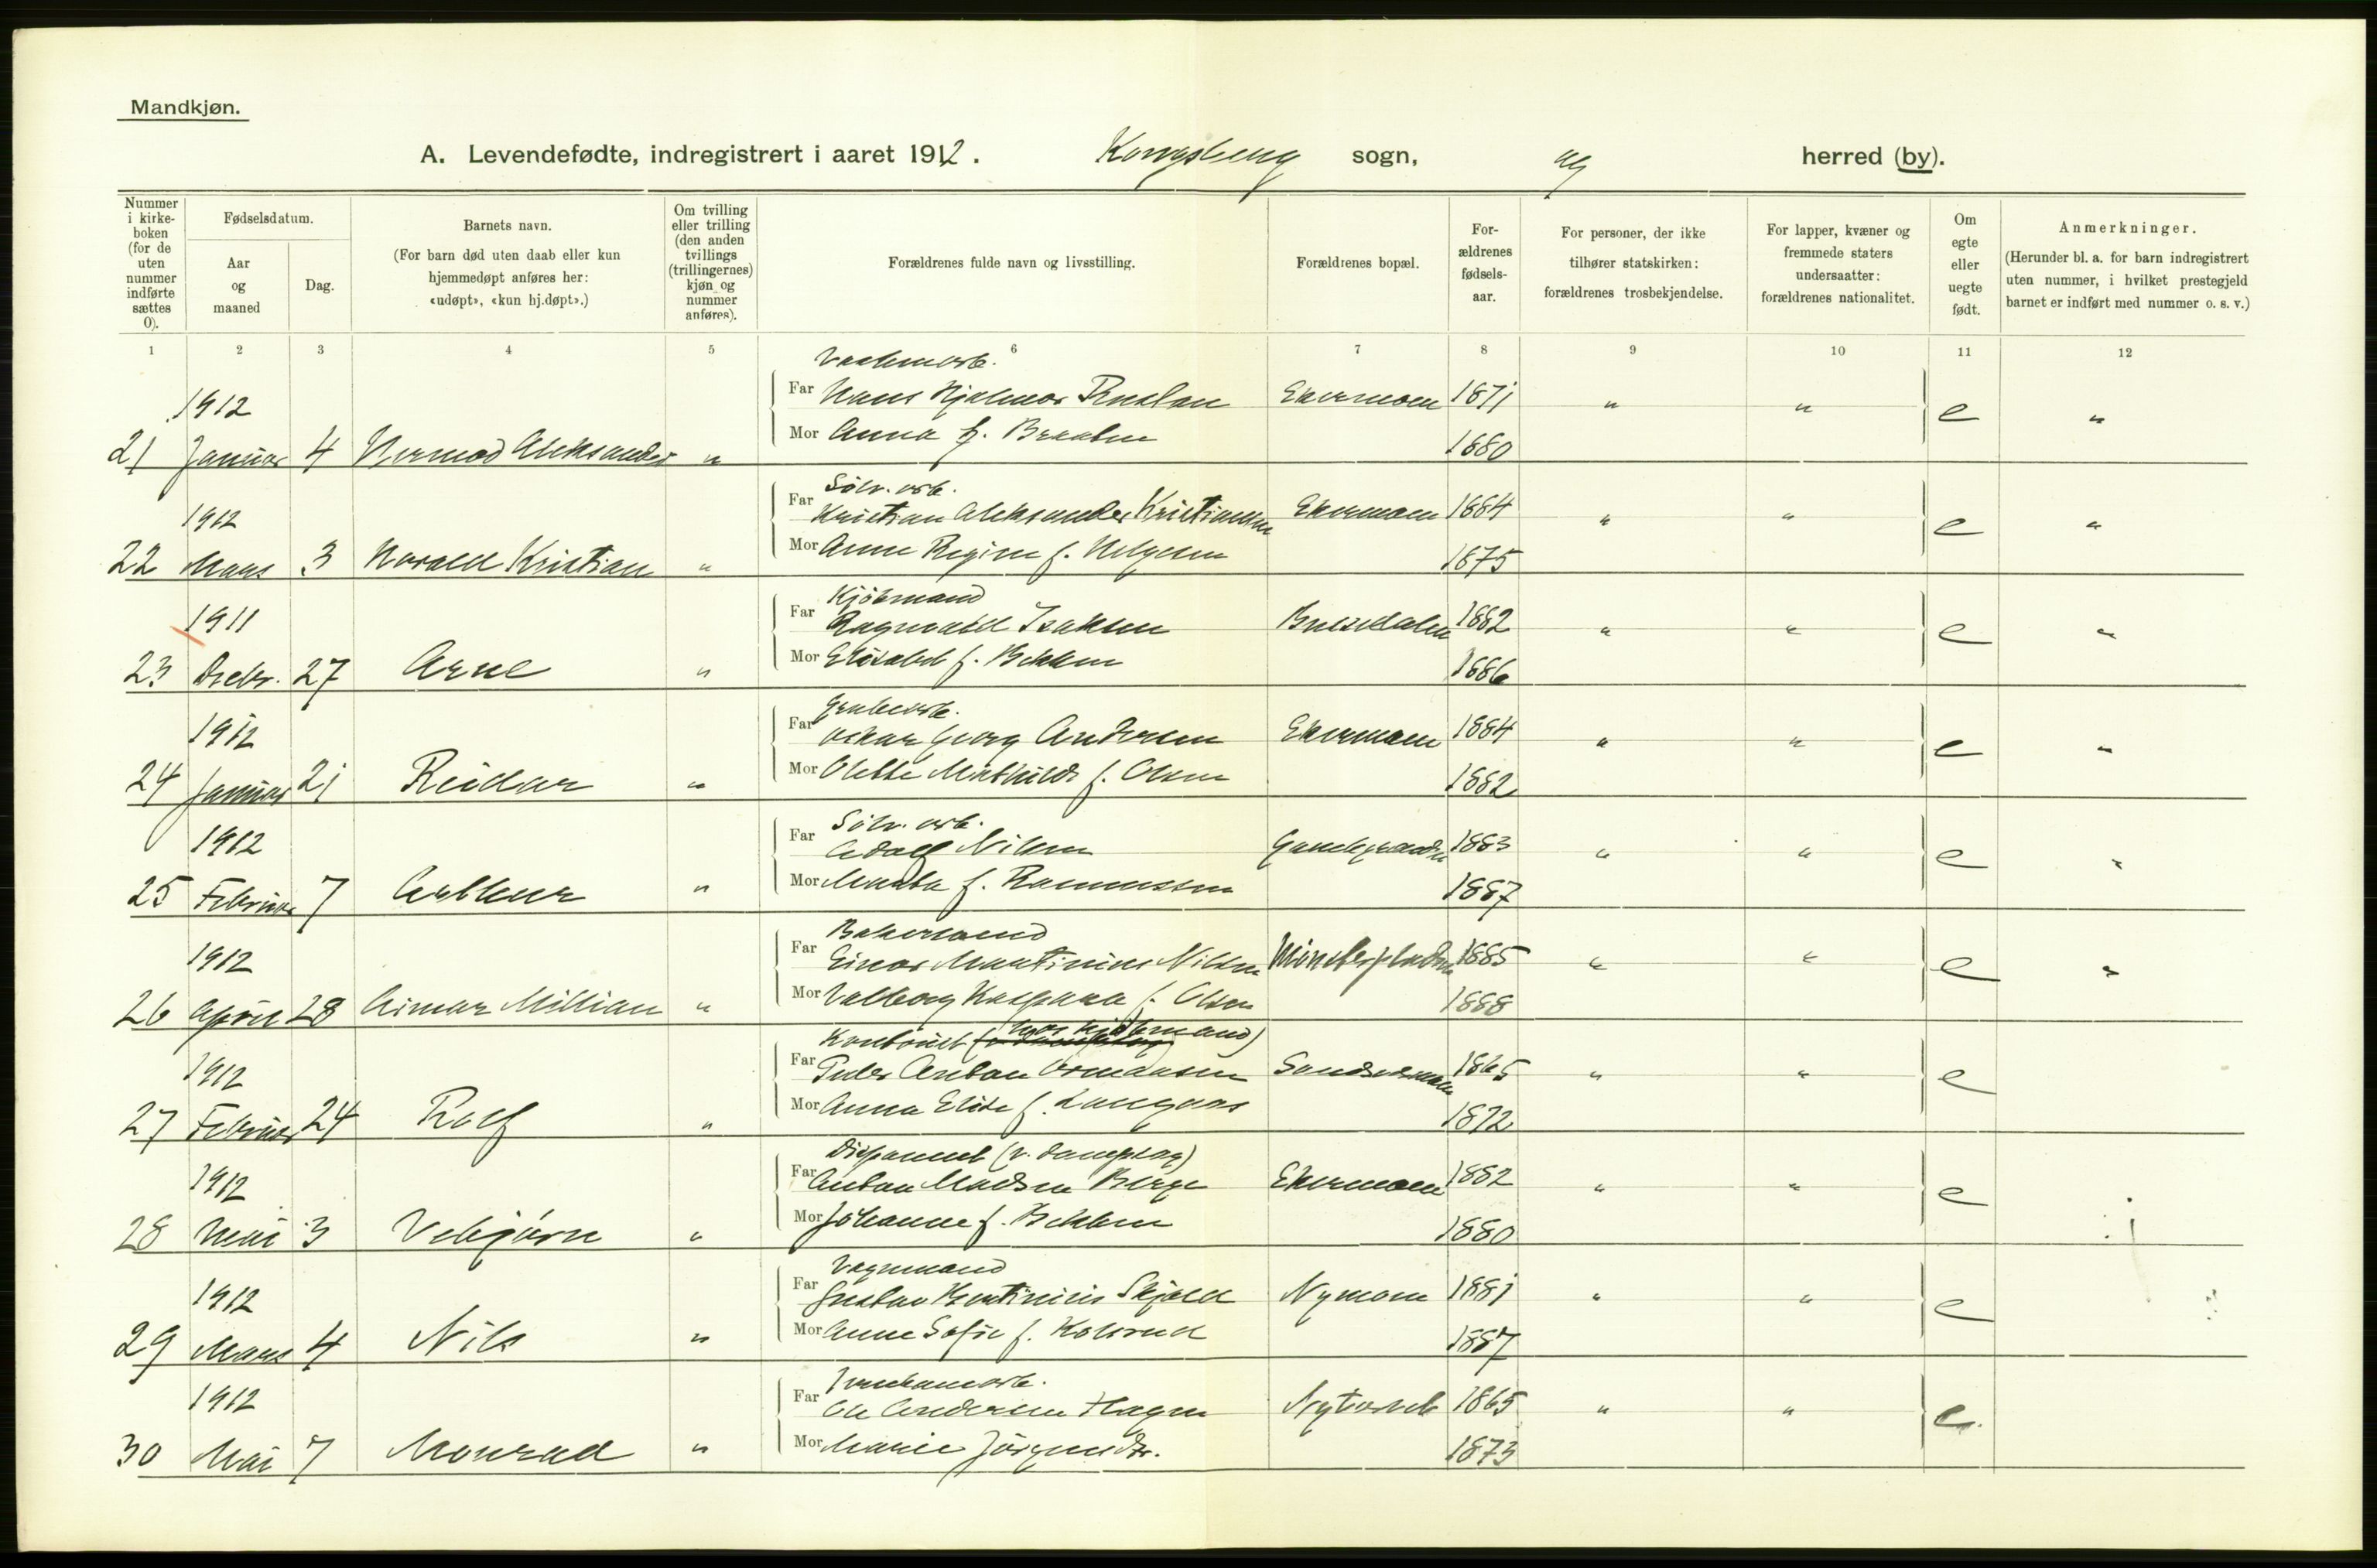 Mandkjøn.
A. Levendefødte, indregistrert i aaret 1912. Kongsberg sogn, og herred (by).
Nummer i kirke-boken (for de uten nummer indførte sættes 0).
Fødselsdatum.
Aar og maaned
Dag.
Barnets navn.
(For barn død uten daab eller kun hjemmedøpt anføres her: «udøpt», «kun hj.døpt».)
Om tvilling eller trilling (den anden tvillings (trillingernes) kjøn og nummer anføres).
Forældrenes fulde navn og livsstilling.
Forældrenes bopæl.
For-ældrenes fødsels-aar.
For personer, der ikke tilhører statskirken: forældrenes trosbekjendelse.
For lapper, kvæner og fremmede staters undersaatter: forældrenes nationalitet.
Om egte eller uegte født.
Anmerkninger.
(Herunder bl. a. for barn indregistrert uten nummer, i hvilket prestegjeld barnet er indført med nummer o. s. v.)
1 2 3 4 5 6 7 8 9 10 11 12
1912
Far Hans Hjalmar 1871 " " e "
Mor Anna f. Braaten 1880
21 Januar 4 Hermod Aleksander "
Sölv. arb.
1912
Far Kristian Aleksander Kristiansen 1884 " " e "
Mor Anne Regine f. Helgesen 1875
22 Mars 3 Harald Kristian "
Kjöbmand
1911
Far Ragnvald Isaksen 1882 " " e "
Mor Elisabet f. Bekken 1886
23 Decbr. 27 Arne "
Grubearb.
1912
Far Oskar Georg Andersen 1884 " " e "
Mor Olette Mathilde f. Olsen 1882
24 Januar 21 Reidar "
Sölv. arb.
1912
Far Adolf Nilsen 1883 " " e "
Mor f. Rasmussen 1887
25 Februar 7 Arthur "
Bakersvend
1912
Far Einar Martinius Nilsen 1885 " " e "
Mor Valborg Kaspara f. Olsen 1888
26 April 28 Aimar Millian "
Kontorist (hos kjöbmand)
1912
Far Peder Anton Ormaasen 1865 " " e
Mor Anna Elise f. Langaas 1872
27 Februar 24 Rolf "
Disponent (v. dampsag)
1912
Far Anton Madsen Berge 1882 " " e
Mor Johanne f. Bekken 1880
28 Mai 3 Vebjörn "
Vognmand
1912
Far Gustav Skjold Nymoen 1881 " " e
Mor Anne Sofie f. Kolsrud 1887
29 Mars 4 Nils "
1912
Far Ole Andersen Hagen Nytorvet 1865 " " e
Mor Marie Jörgensdtr. 1873
30 Mai 7 Monrad "